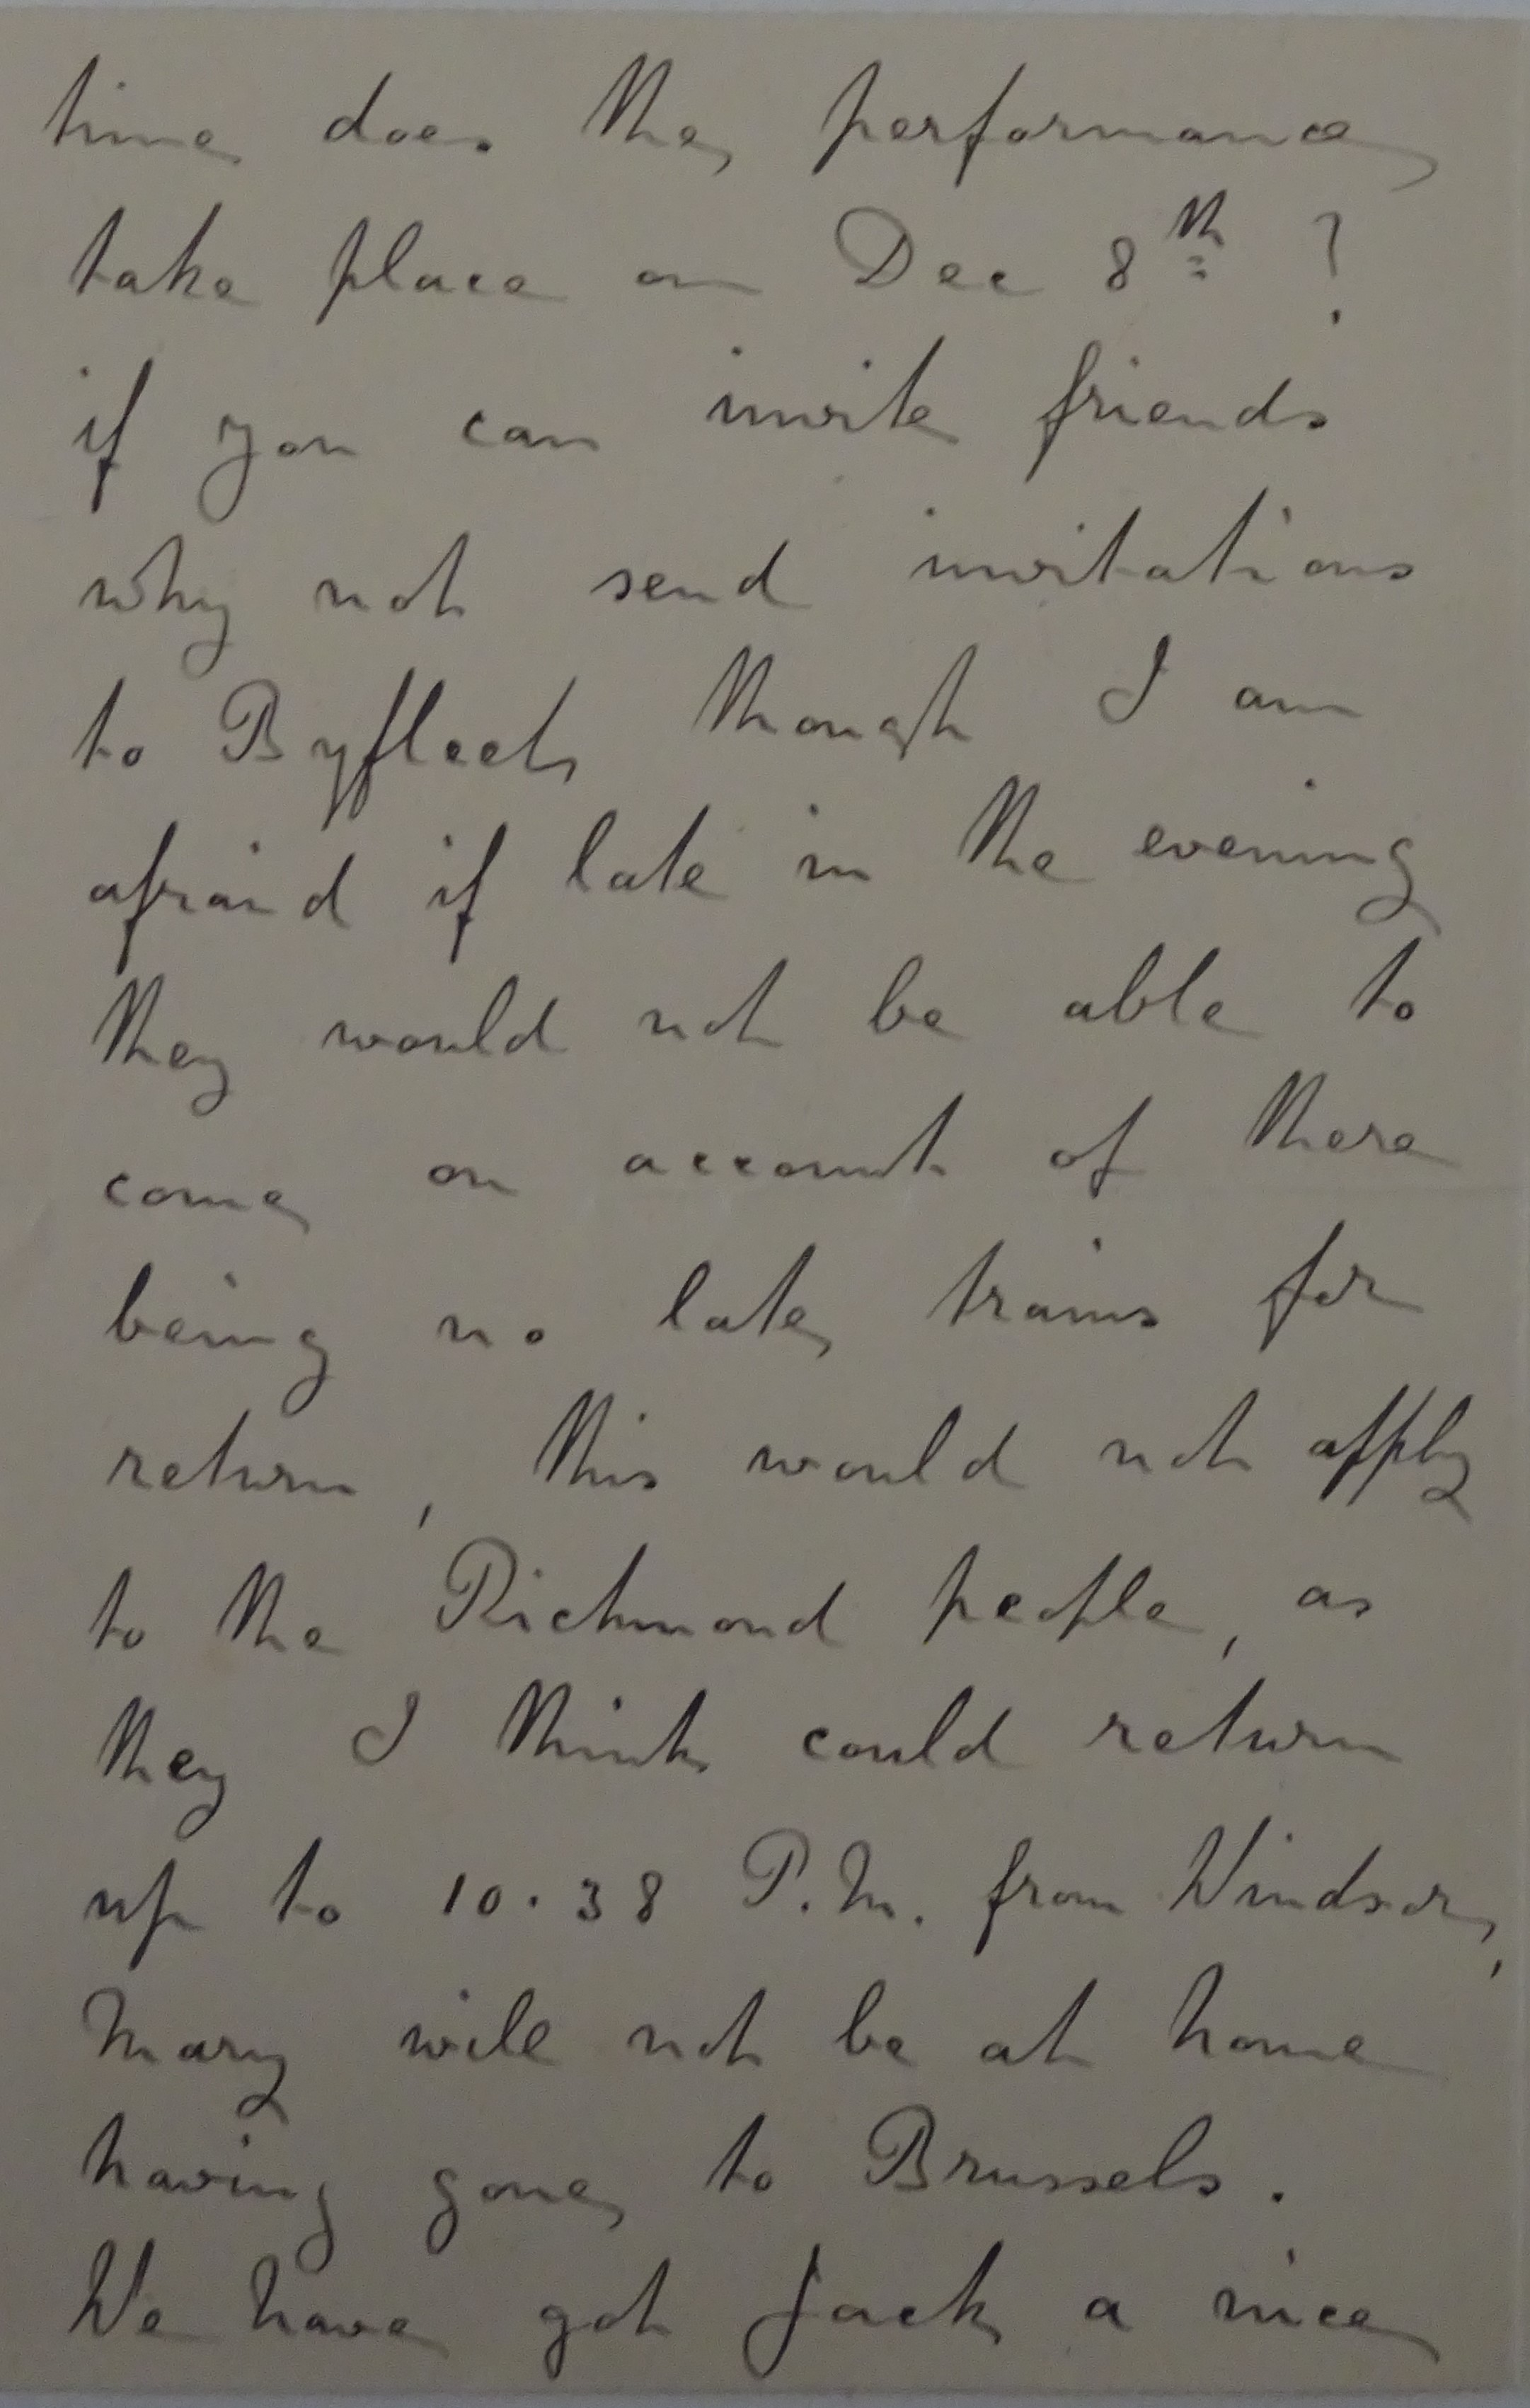 time does the performance
take place on Dec 8th ?
if you can invite friends
why not send invitations
to Byfleet, though I am
afraid if late in the evening
they would not be able to
come on account of there
being no late trains for
return, this would not apply
to the Richmond people, as
they I think could return
up to 10.38 P.M. from Windsor,
Mary will not be at home
having gone to Brussels.
We have got Jack a nice